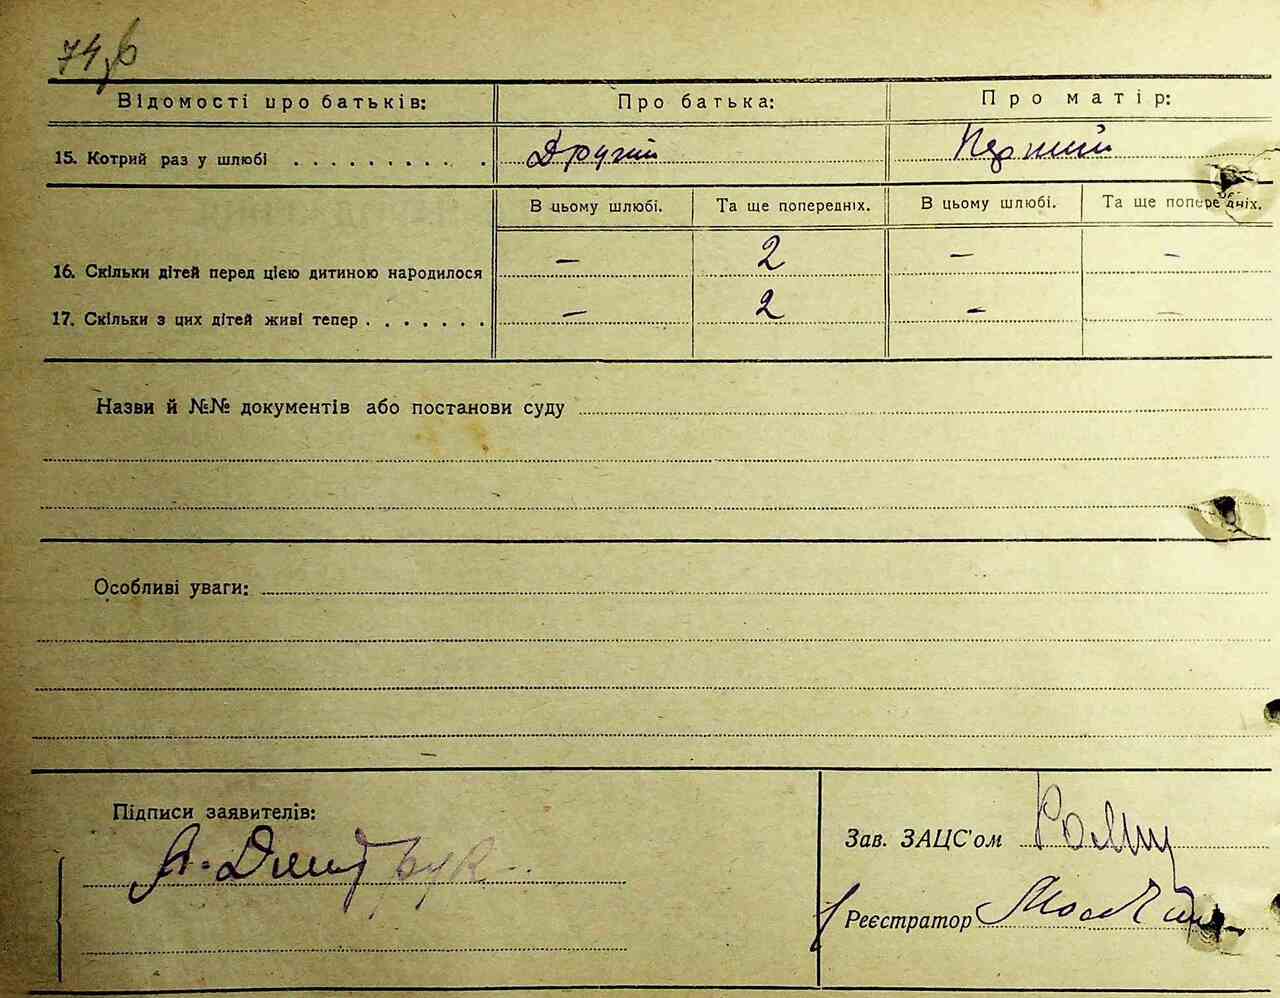 74,б
Відомості про батьків: Про батька: Про матір:
15. Котрий раз у шлюбі . . . . . . . . . . Другий Перший
В цьому шлюбі. Та ще попередніх. В цьому шлюбі. Та ще попередніх.
16. Скільки дітей перед цією дитиною народилося — 2 — —
17. Скільки з цих дітей живі тепер . . . . . . . — 2 — —
Назви й №№ документів або постанови суду
Особливі уваги:
Підписи заявителів:
А. Дмитрук
Зав. ЗАЦС'ом
Реєстратор